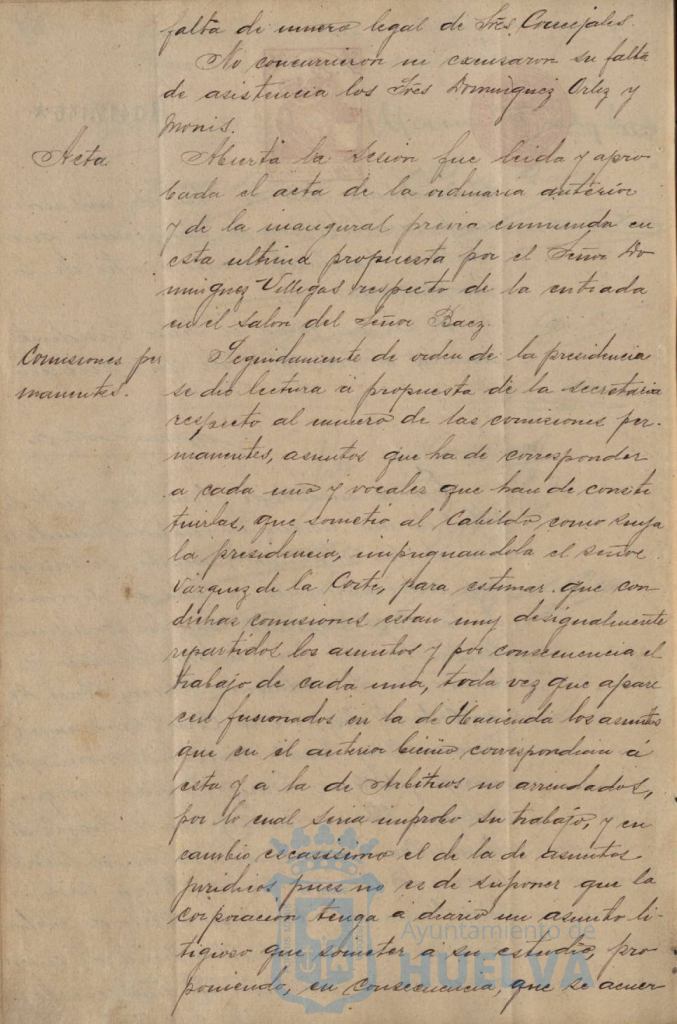 falta de numero legal de Sres. Concejales.
No concurrieron ni excusaron su falta
de asistencia los Sres Dominguez Ortiz y
Monis.
Acta
Abierta la sesion fue leida y apro
bada el acta de la ordinaria anterior
y de la inaugural previa enmienda en
esta ultima propuesta por el Señor Do
minguez Villegas respecto de la entrada
en el salon del Señor Baez.
Comisiones per
manentes.
Seguidamente de orden de la presidencia
se dio lectura á propuesta de la secretaria
respecto al numero de las comisiones per-
manentes, asuntos que ha de corresponder
a cada una y vocales que han de consti
tuirlas, que sometio al Cabildo como suya
la presidencia, impugnandola el señor
Vazquez de la Corte, para estimar que con
dichas comisiones estan muy desigualmente
repartidos los asuntos y por consecuencia el
trabajo de cada una, toda vez que apare
cen fusionados en la de Hacienda los asuntos
que en el anterior bienio correspondian á
esta y á la de Arbitrios no arrendados,
por lo cual seria improbo su trabajo, y en
cambio escasisimo el de la de asuntos
juridicos pues no es de suponer que la
corporación tenga á diario un asunto li-
tigioso que someter á su estudio, pro-
poniendo, en consecuencia, que se acuer
Ayuntamiento de
HUELVA